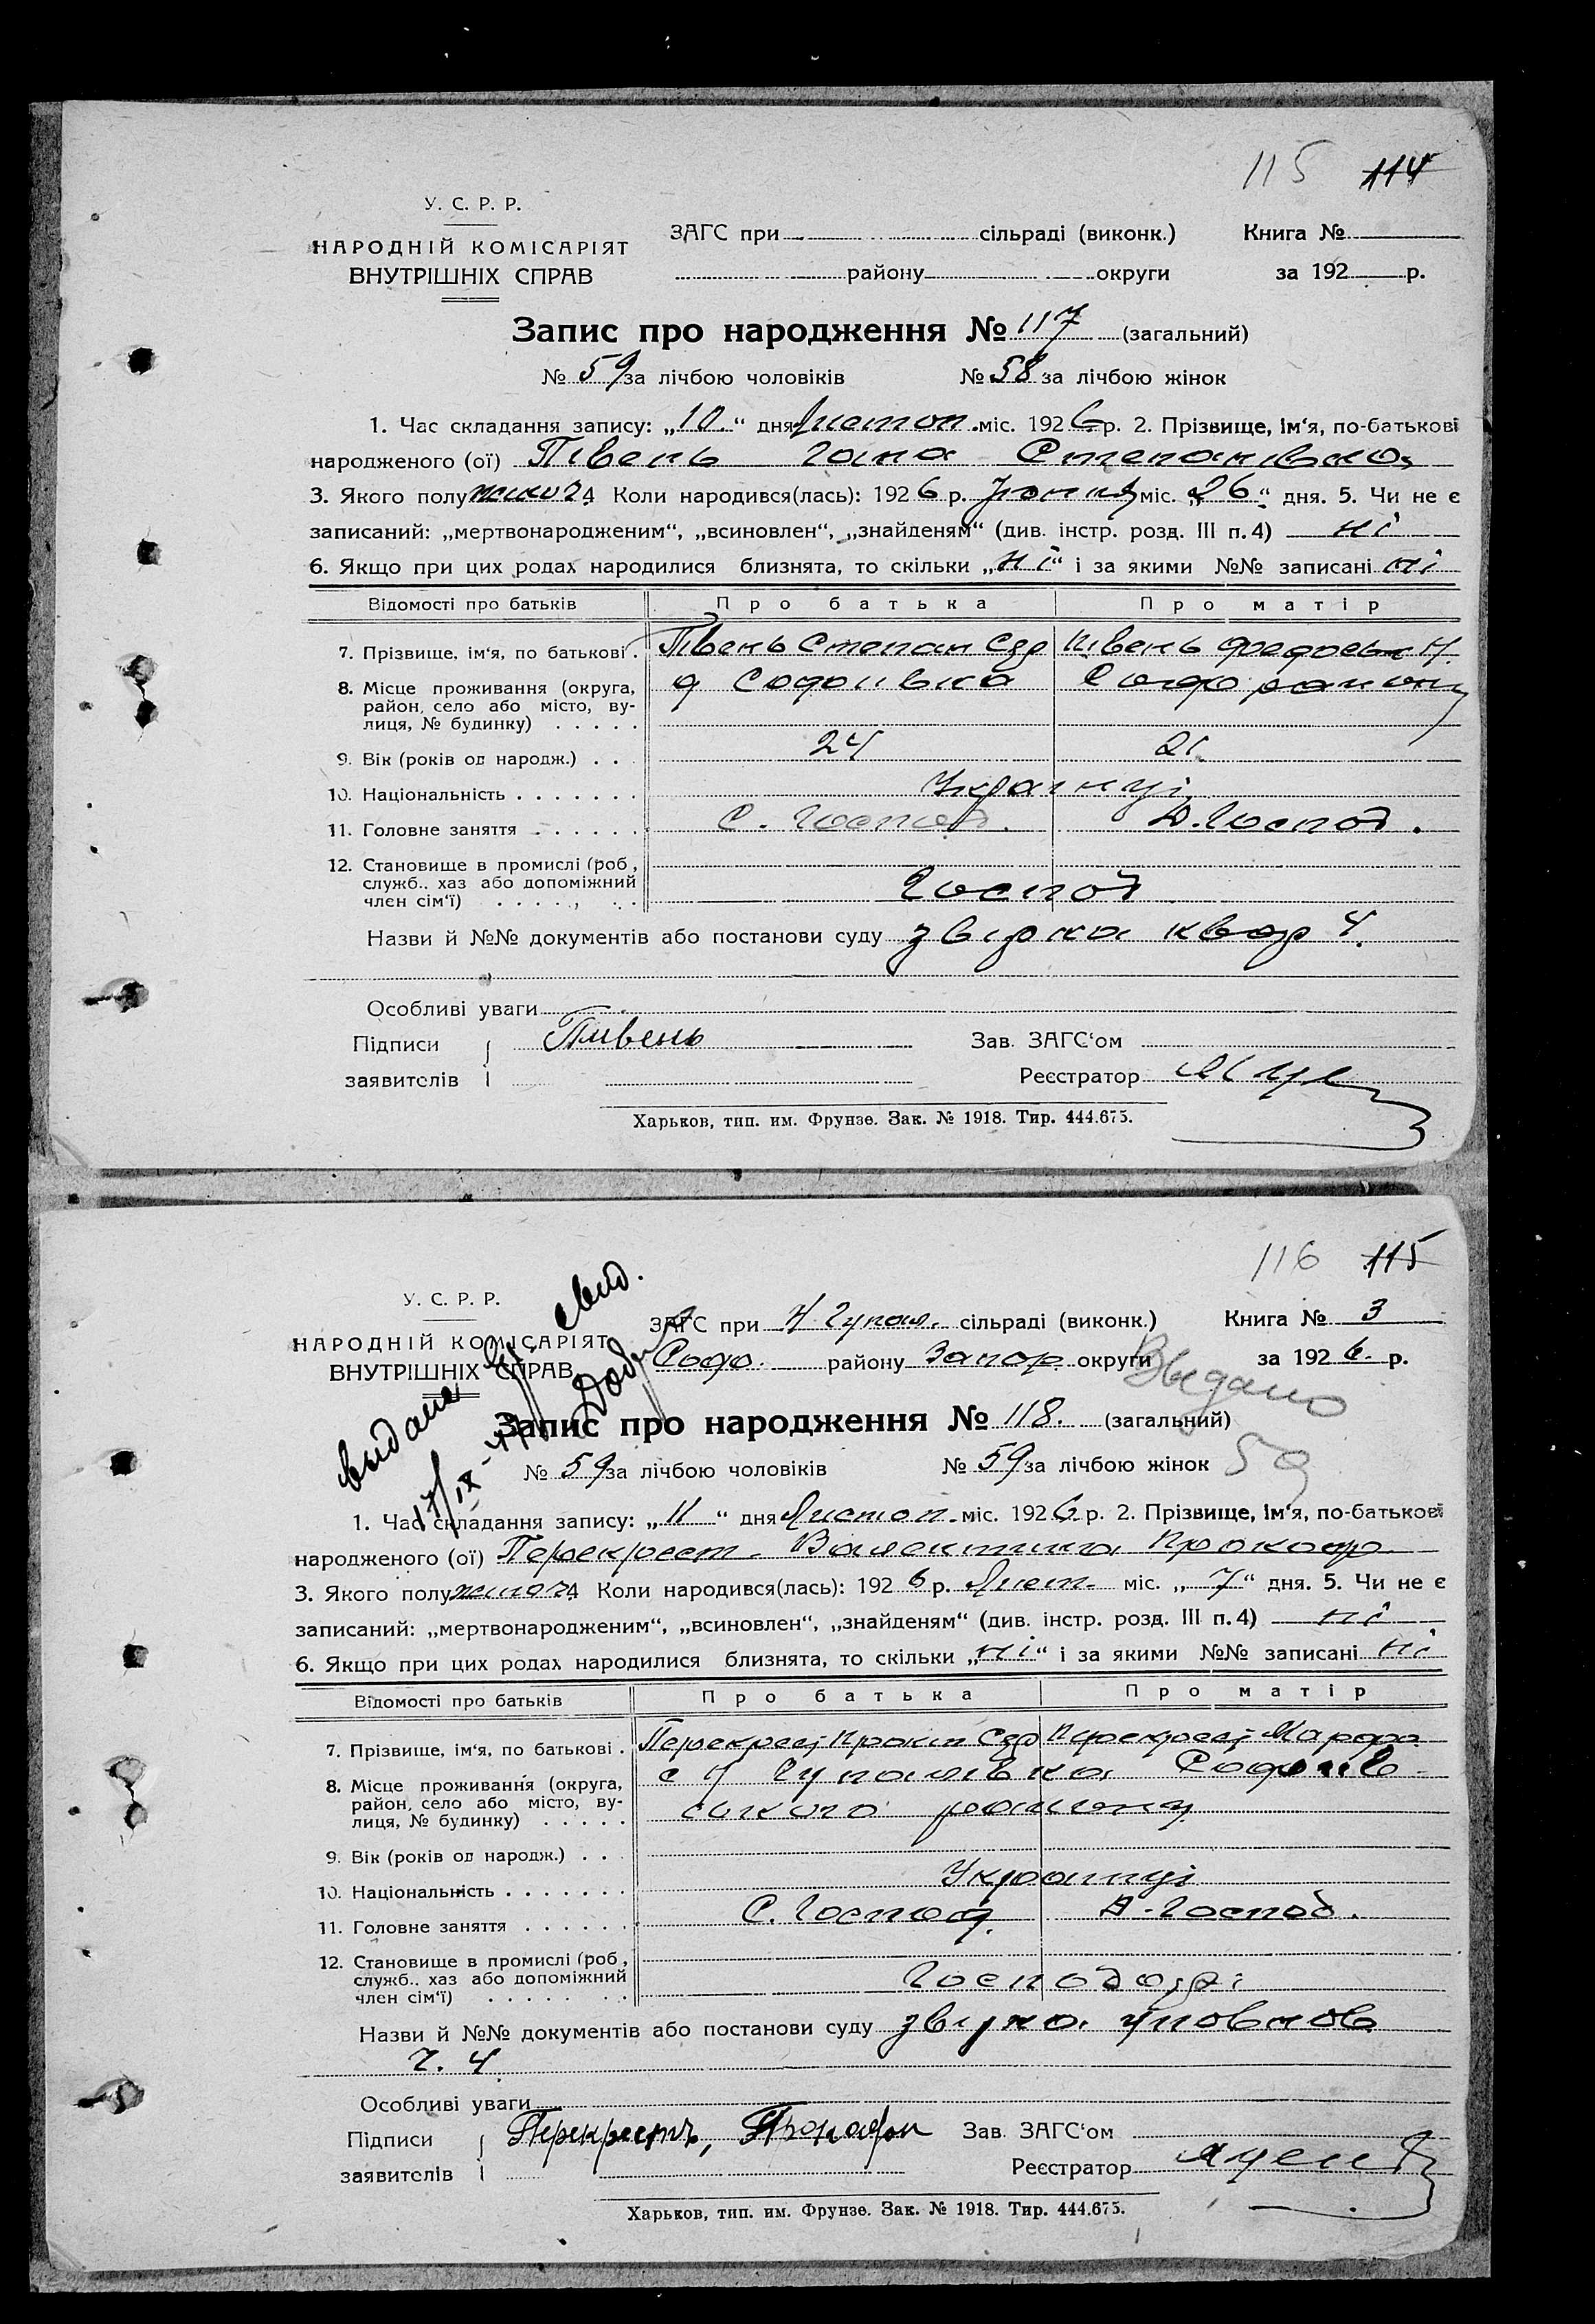 115 114
У. С. Р. Р.
НАРОДНІЙ КОМІСАРІЯТ
ВНУТРІШНІХ СПРАВ
ЗАГС при сільраді (виконк.) Книга №
району округи за 192 р.
Запис про народження № 117 (загальний)
№ 59 за лічбою чоловіків № 58 за лічбою жінок
1. Час складання запису: „10.“ дня Листоп. міс. 1926 р. 2. Прізвище, ім‘я, по-батькові
народженого (ої) Півень Гана Степанівна
3. Якого полу жіноч 4 Коли народився(лась): 1926 р. міс. „26“ дня. 5. Чи не є
записаний: „мертвонародженим“, „всиновлен“, „знайденям“ (див. інстр. розд. III п. 4) ні
6. Якщо при цих родах народилися близнята, то скільки „ні“ і за якими №№ записані ні
Відомості про батьків Про батька Про матір
7. Прізвище, ім‘я, по батькові . Півень Степан Півень
8. Місце проживання (округа, Софіївка Соф району
район, село або місто, ву-
лиця, № будинку) . . . . .
9. Вік (років од народж.) . . . 24 21
10. Національність . . . . . . . Українці
11. Головне заняття . . . . . . С. Господ. Д. Господ.
12. Становище в промислі (роб.,
служб.. хаз або допоміжний
член сім‘ї) . . . . , . . Господ
Назви й №№ документів або постанови суду звірка квар 4.
Особливі уваги
Підписи Пивень Зав. ЗАГС‘ом
заявителів Реєстратор
Харьков, тип. им. Фрунзе. Зак. № 1918. Тир. 444.675.
116 115
У. С. Р. Р.
НАРОДНІЙ КОМІСАРІЯТ
ВНУТРІШНІХ СПРАВ
ЗАГС при Н Гупал. сільраді (виконк.) Книга № 3
Соф. району Запор округи за 1926. р.
Выдано
59
выдана свид.
17/IX-
Запис про народження № 118. (загальний)
№ 59 за лічбою чоловіків № 59 за лічбою жінок
1. Час складання запису: „11“ дня Листоп. міс. 1926 р. 2. Прізвище, ім‘я, по-батькові
народженого (ої) Перекрест Валентина Прокоф.
3. Якого полу жіноч 4 Коли народився(лась): 1926 р. Лист. міс. „7“ дня. 5. Чи не є
записаний: „мертвонародженим“, „всиновлен“, „знайденям“ (див. інстр. розд. III п. 4) ні
6. Якщо при цих родах народилися близнята, то скільки „ні“ і за якими №№ записані ні
Відомості про батьків Про батька Про матір
7. Прізвище, ім‘я, по батькові . Перекрест Перекрест Марфа
8. Місце проживання (округа, с Н Гупалівка Софіїв
район, село або місто, ву- ського району
лиця, № будинку) . . . . .
9. Вік (років од народж.) . . .
10. Національність . . . . . . . Українці
11. Головне заняття . . . . . . С. Господ. Д. Господ.
12. Становище в промислі (роб.,
служб.. хаз або допоміжний
член сім‘ї) . . . . . . . Господарі
Назви й №№ документів або постанови суду
ч. 4
Особливі уваги
Підписи Перекрестъ, Зав. ЗАГС‘ом
заявителів Реєстратор
Харьков, тип. им. Фрунзе. Зак. № 1918. Тир. 444.675.